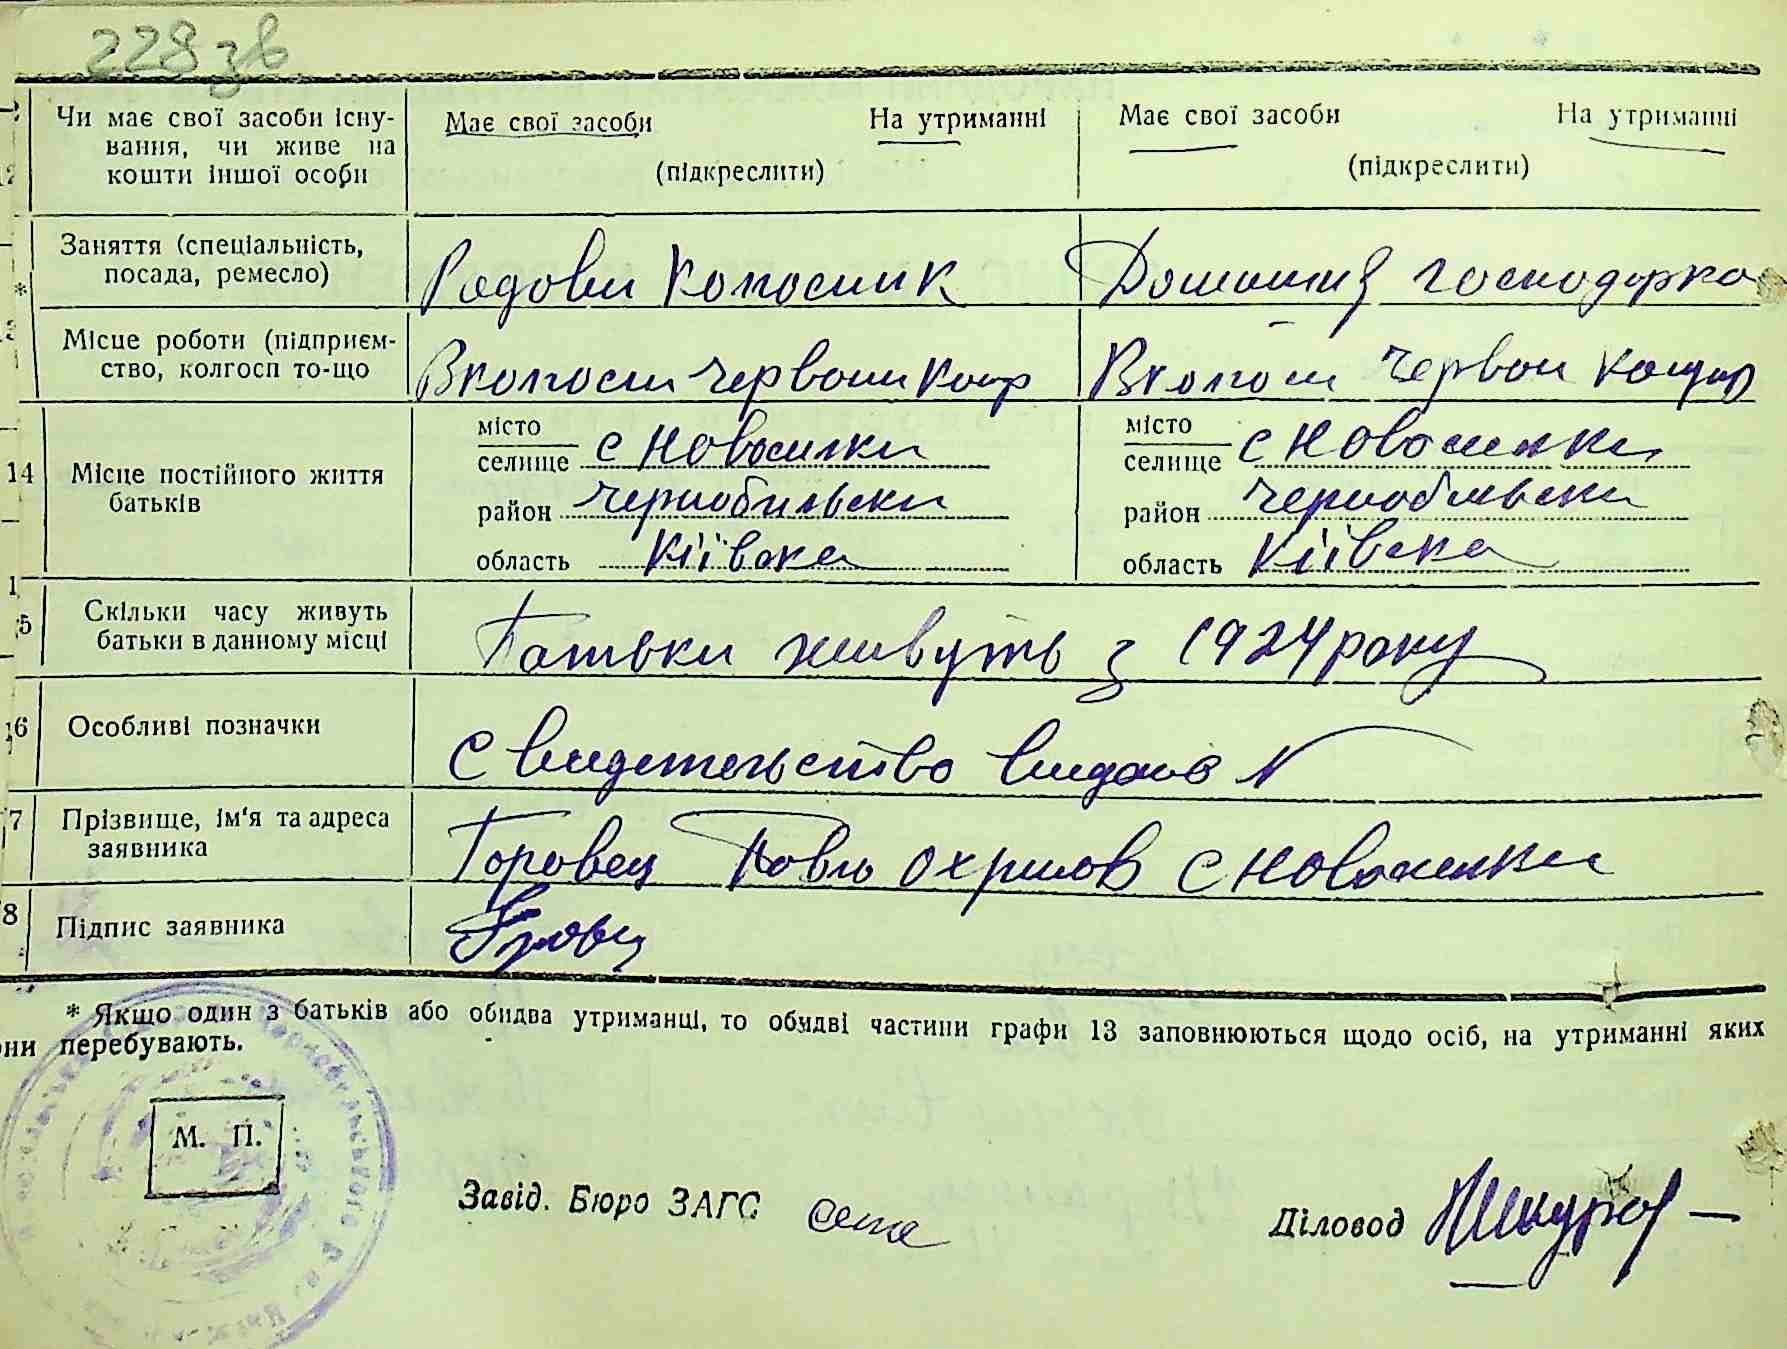 228 зв
Чи має свої засоби існу-
вання, чи живе на
кошти іншої особи
Має свої засоби На утриманні
(підкреслити)
Має свої засоби На утриманні
(підкреслити)
Заняття (спеціальність,
посада, ремесло)
Родови Колгосник
Домашня господорка
Місце роботи (підприєм-
ство, колгосп то-що
В колгоспи червони
В колгоспи червон
14
Місце постійного життя
батьків
місто
селище с Новосилки
район чернобильски
область Київска
місто
селище с Новосилки
район чернобильски
область Київска
5
Скільки часу живуть
батьки в данному місці
Батьки живуть з 1924 року
6
Особливі позначки
Свидетельство видано №
7
Прізвище, ім'я та адреса
заявника
Горовец Повло с Новоселки
8
Підпис заявника
* Якщо один з батьків або обидва утриманці, то обидві частини графи 13 заповнюються щодо осіб, на утриманні яких
они перебувають.
М. П.
Завід. Бюро ЗАГС
Діловод